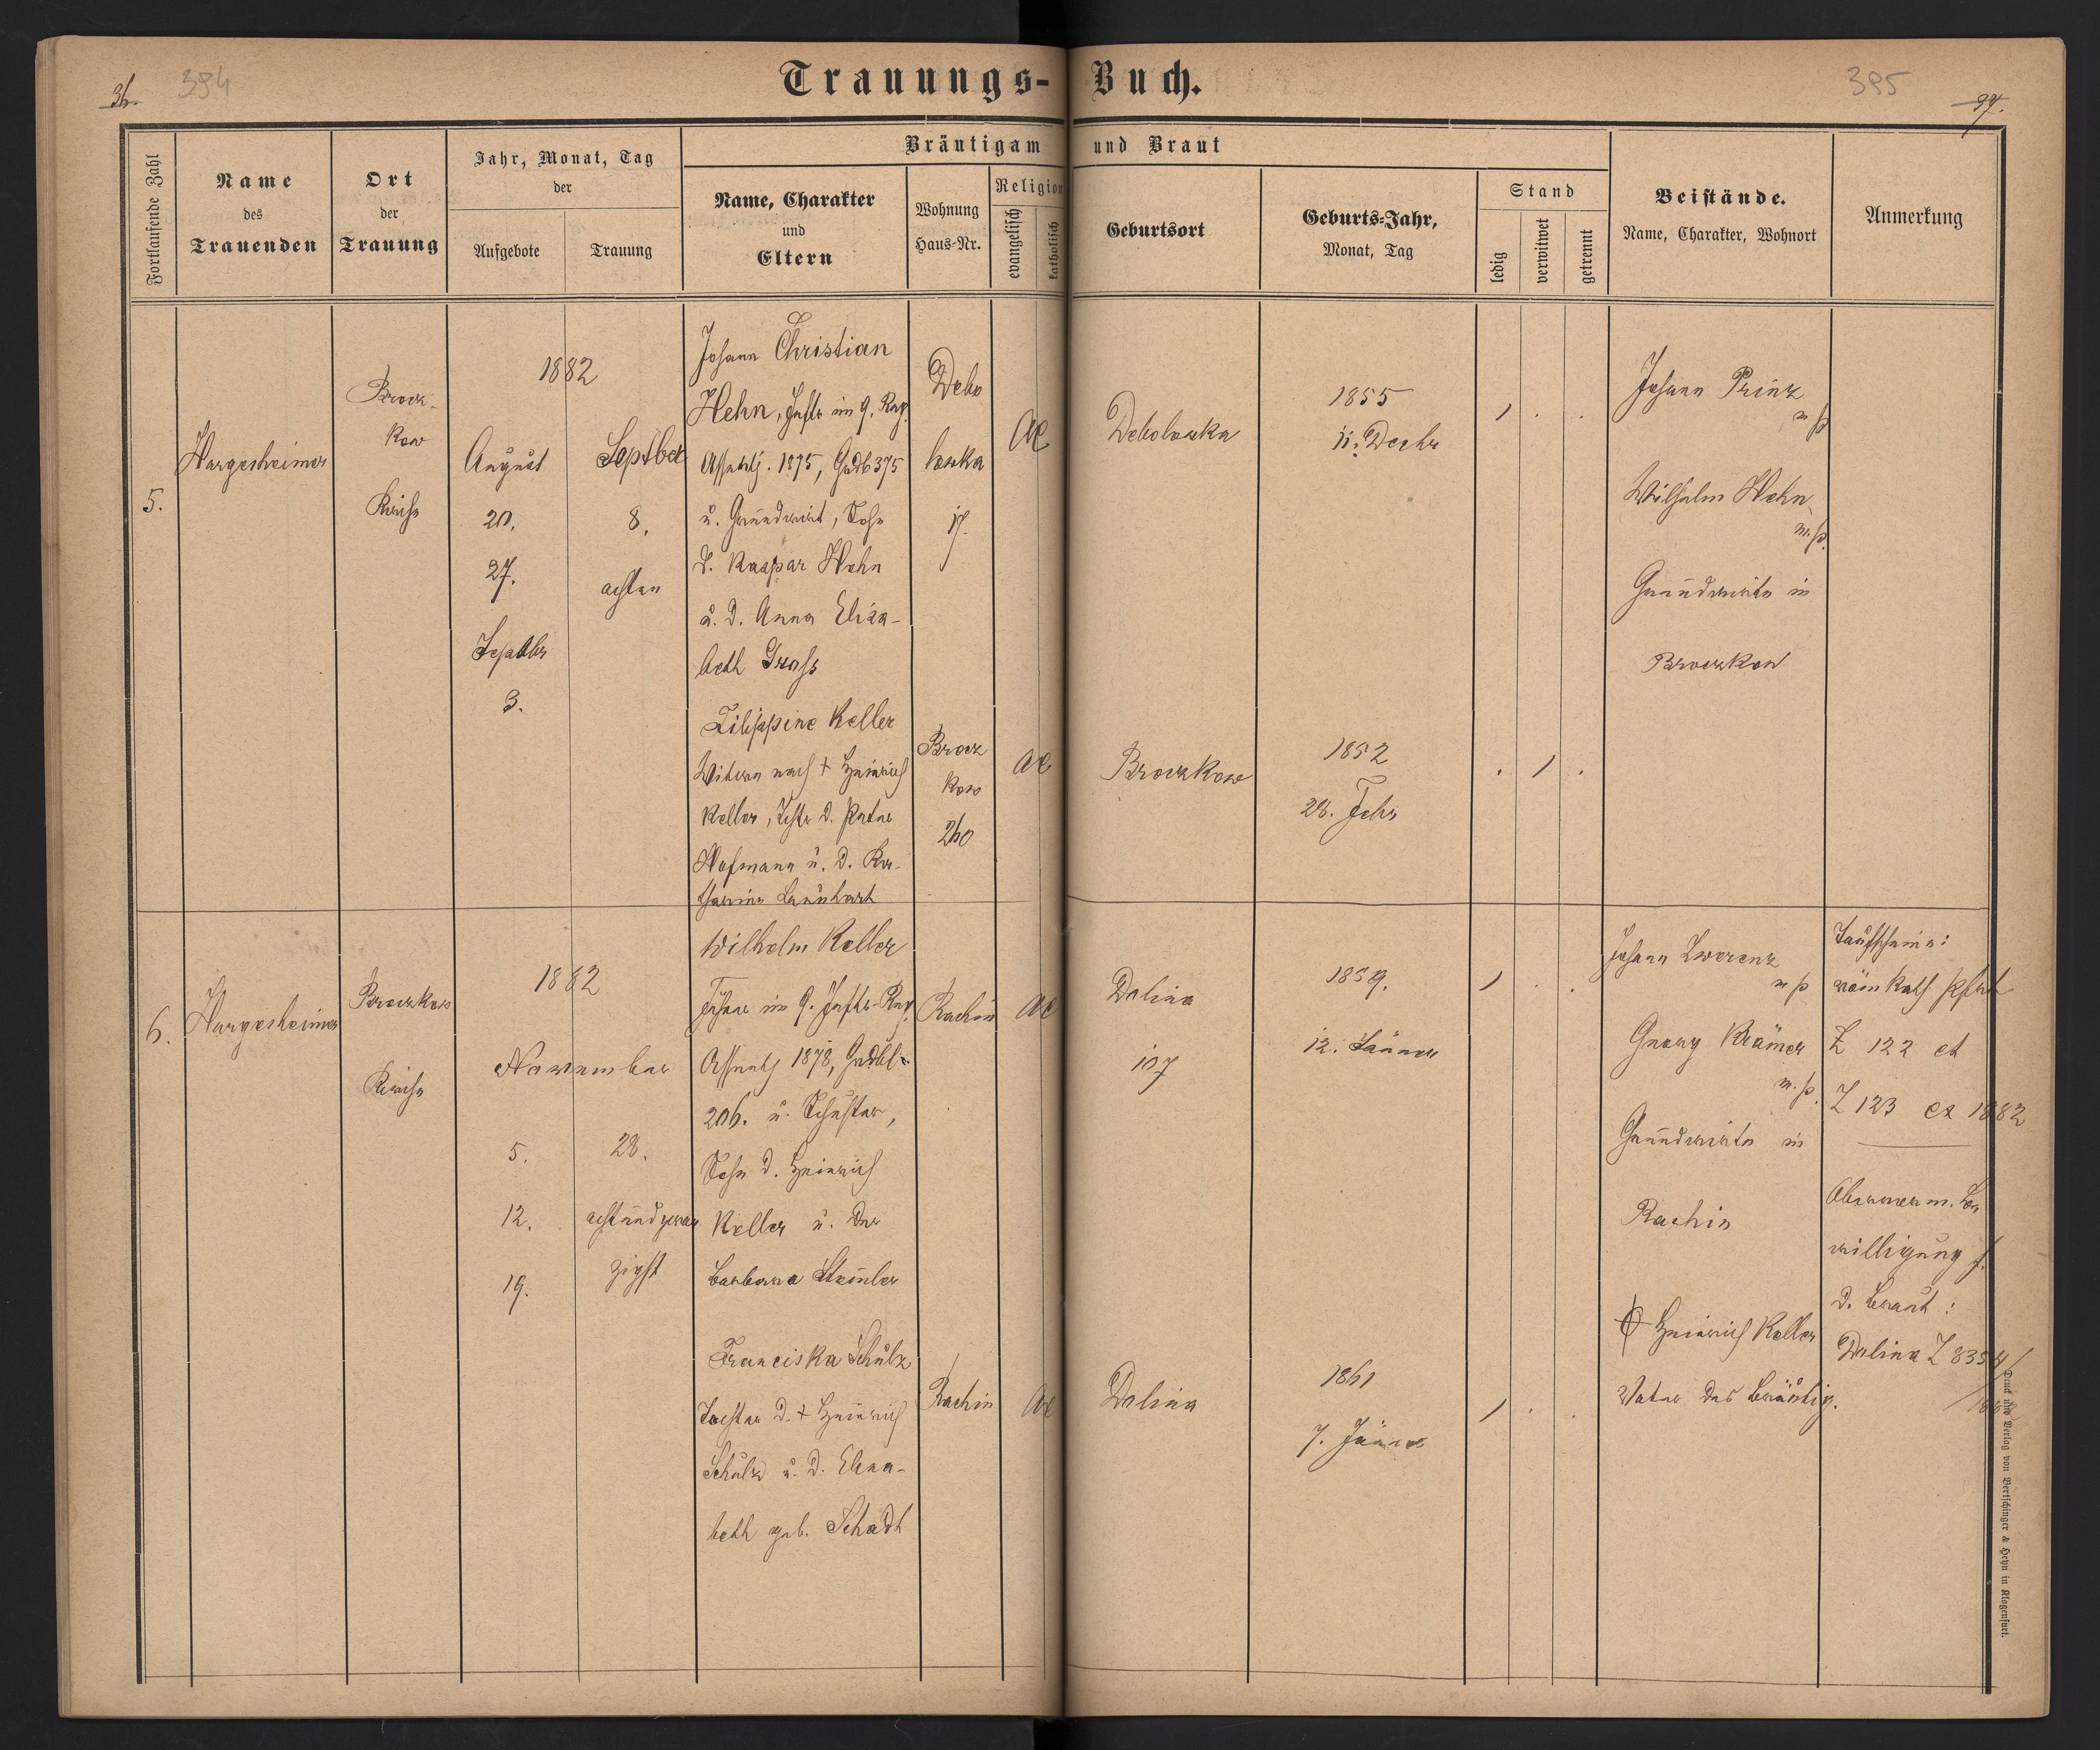 36. 394
Trauungs-Buch.
395 37.
Fortlaufende Zahl
Name
des
Trauenden
Ort
der
Trauung
Jahr, Monat, Tag
der
Aufgebote
Trauung
Bräutigam und Braut
Name, Charakter
und
Eltern
Wohnung
Haus-Nr.
Religion
evangelisch
katholisch
Geburtsort
Geburts-Jahr,
Monat, Tag
Stand
ledig
verwitwet
getrennt
Beistände.
Name, Charakter, Wohnort
Anmerkung
5.
Hargesheimer
Brocz-
kow
Kirche
1882
August
20.
27.
Septbr
3.
Septber
8.
achten
Johann Christian
Hehn, Inftr im 9. Rgt.
Assentj. 1875, Grdb 375
u. Grundwirt, Sohn
d. Kaspar Hehn
u. d. Anna Elisa-
beth Gross
Debo
lowka
17.
AC
Debolowka
1855
11. Decbr
Johann Prinz
m p
Wilhelm Hehn
m. p.
Grundwirte in
Broczkow
Filippine Keller
Witwe nach + Heinrich
Keller, Tchtr d. Peter
Hofmann u. d. Ka-
tharina
Brocz
kow
260
AC
Broczkow
1852
28. Febr
6.
Hargesheimer
Broczkow
Kirche
1882
November
5.
12.
19.
28.
achtundzwan
zigst
Wilhelm Keller
im 9. Inftr-Rgt.
Assentj 1878, Grdbl
206. u. Schuster,
Sohn d. Heinrich
Keller u. der
Barbara
Rachin
AC
Dolina
107
1859.
12. Jänner
Johann Zwerenz
m p
Georg Krämer
m. p.
Grundwirte in
Rachin
Heinrich Keller
Vater des Bräutig.
Taufscheine:
röm kath Pfarr
Z 122 et
Z 123 ex 1882
Obervorm. Be
willigung f.
d. Braut:
Dolina Z 8354/
1882
Franciska Schulz
Tochter d. + Heinrich
Schulz u. d. Elisa-
beth geb. Schadt
Rachin
AC
Dolina
1861
7. Jänner
Druck und Verlag von Bertschinger & Heyn in Klagenfurt.